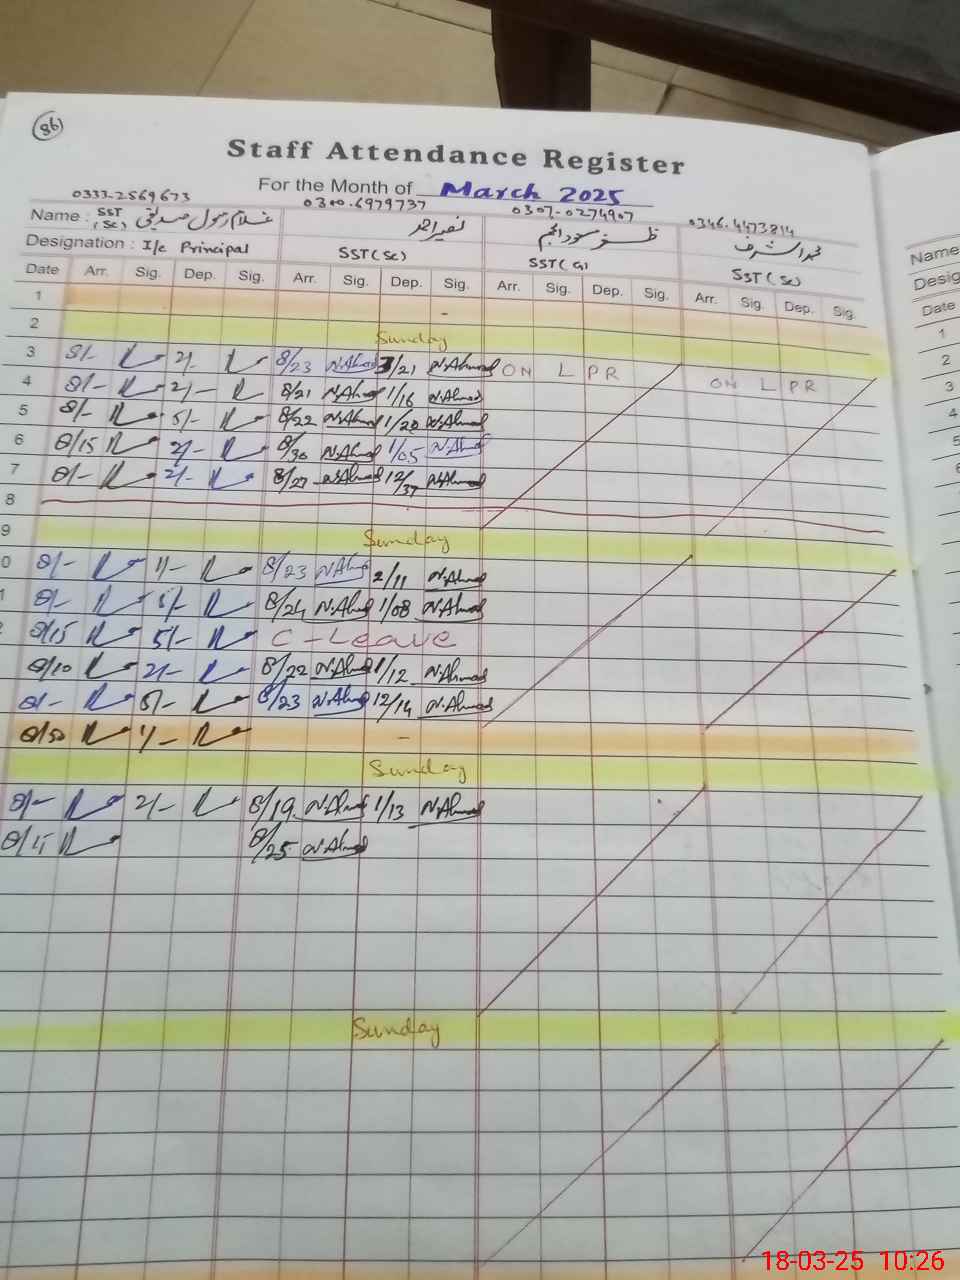 86
Staff Attendance Register
For the Month of March 2025
0333-2569673 0300-6979737 0307-0274907 0346-4473814
Name : SST (Sc) غلام رسول صدیقی نصیر احمد ظفر مسعود انجم محمد اشرف
Designation : I/c Principal SST (Sc) SST (G) SST (Sc)
Date Arr. Sig. Dep. Sig. Arr. Sig. Dep. Sig. Arr. Sig. Dep. Sig. Arr. Sig. Dep. Sig.
1 -
2 Sunday
3 8/- 2/- 8/23 N.Ahmad 1/21 N.Ahmad ON L P R
4 8/- 2/- 8/21 N.Ahmad 1/16 N.Ahmad ON L P R
5 8/- 5/- 8/22 N.Ahmad 1/20 N.Ahmad
6 8/15 2/- 8/30 N.Ahmad 1/05 N.Ahmad
7 8/- 2/- 8/27 N.Ahmad 12/37 N.Ahmad
8
9 Sunday
0 8/- 1/- 8/23 N.Ahmad 2/11 N.Ahmad
1 8/- 5/- 8/24 N.Ahmad 1/08 N.Ahmad
2 8/15 5/- C-Leave
8/10 2/- 8/22 N.Ahmad 1/12 N.Ahmad
8/- 5/- 8/23 N.Ahmad 12/14 N.Ahmad
8/50 1/- -
Sunday
8/- 2/- 8/19 N.Ahmad 1/13 N.Ahmad
8/15 8/25 N.Ahmad
Sunday
Name
Desig
Date
1
2
3
4
5
6
7
8
9
18-03-25 10:26